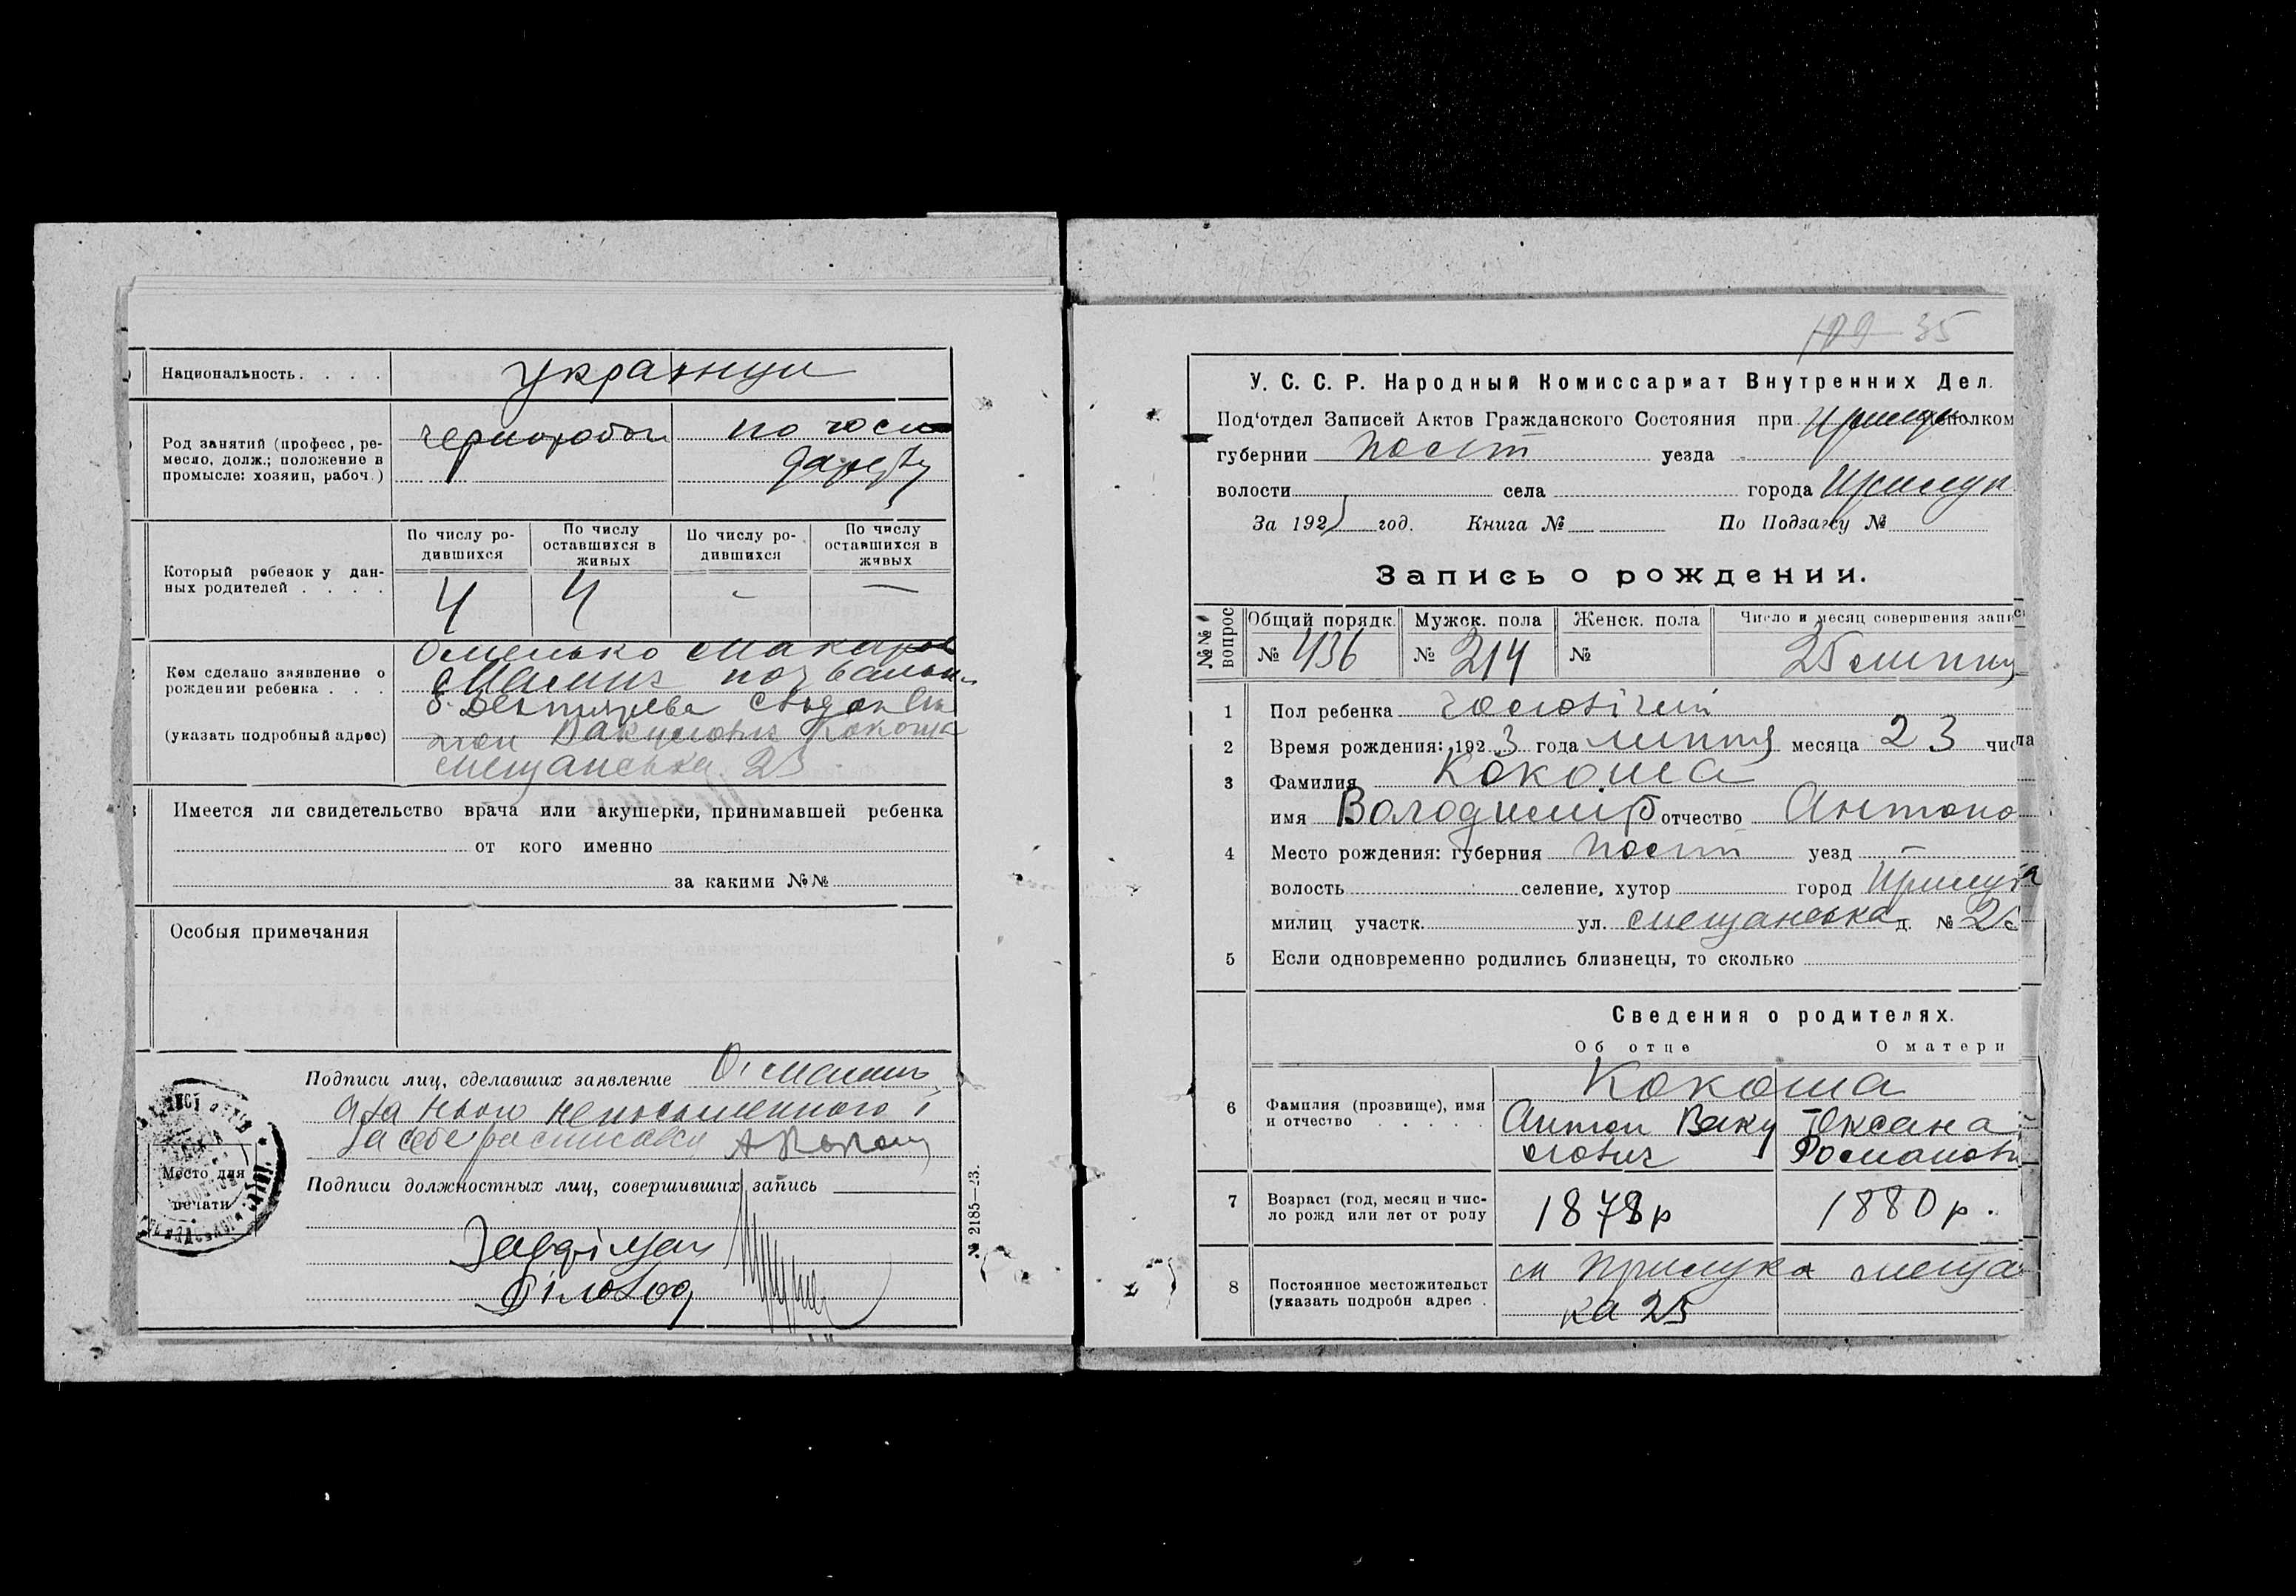 Национальность. . . . .
українці
Род занятий (професс, ре-
месло, долж.; положение в
промысле: хозяин, рабоч.)
чорнороб
по госпо
дарству
Который ребенок у дан-
ных родителей . . . .
По числу ро-
дившихся
По числу
оставшихся в
живых
По числу ро-
дившихся
По числу
оставшихся в
живых
4 4 - —
Кем сделано заявление о
рождении ребенка . . .
(указать подробный адрес)
Омелько
б. Дегтярева
тон Вакулович Кокоша
Мещанська 25
Имеется ли свидетельство врача или акушерки, принимавшей ребенка
от кого именно
за какими №№
Особыя примечания
Подписи лиц, сделавших заявление
за нього неписьменного і
за себе росписавсь
Место для
печати
Подписи должностных лиц, совершивших запись
Діловод
№ 2185—23.
109 35
У. С. С. Р. Народный Комиссариат Внутренних Дел.
Под'отдел Записей Актов Гражданского Состояния при полком
губернии Полт уезда
волости села города Прилук
За 192 год. Книга № По Подзагсу №
Запись о рождении.
№№ вопрос
Общий порядк. Мужск. пола Женск. пола Число и месяц совершения запис
№ 436 № 214 № 25 липня
1 Пол ребенка чоловічий
2 Время рождения: 1923 года липня месяца 23 числа
3 Фамилия Кокоша
имя Володимір отчество Антоно
4 Место рождения: губерния Полт уезд —
волость селение, хутор город Прилука
милиц участк. ул. Мещанська д. № 25
5 Если одновременно родились близнецы, то сколько
Сведения о родителях.
Об отце О матери
6 Фамилия (прозвище), имя
и отчество . . . . .
Кокоша
Антон Ваку Оксана
лович Романовн
7 Возраст (год, месяц и чис-
ло рожд или лет от роду
1878р 1880р.
8 Постоянное местожительст
(указать подробн адрес .
м Прилука Меща
ка 25